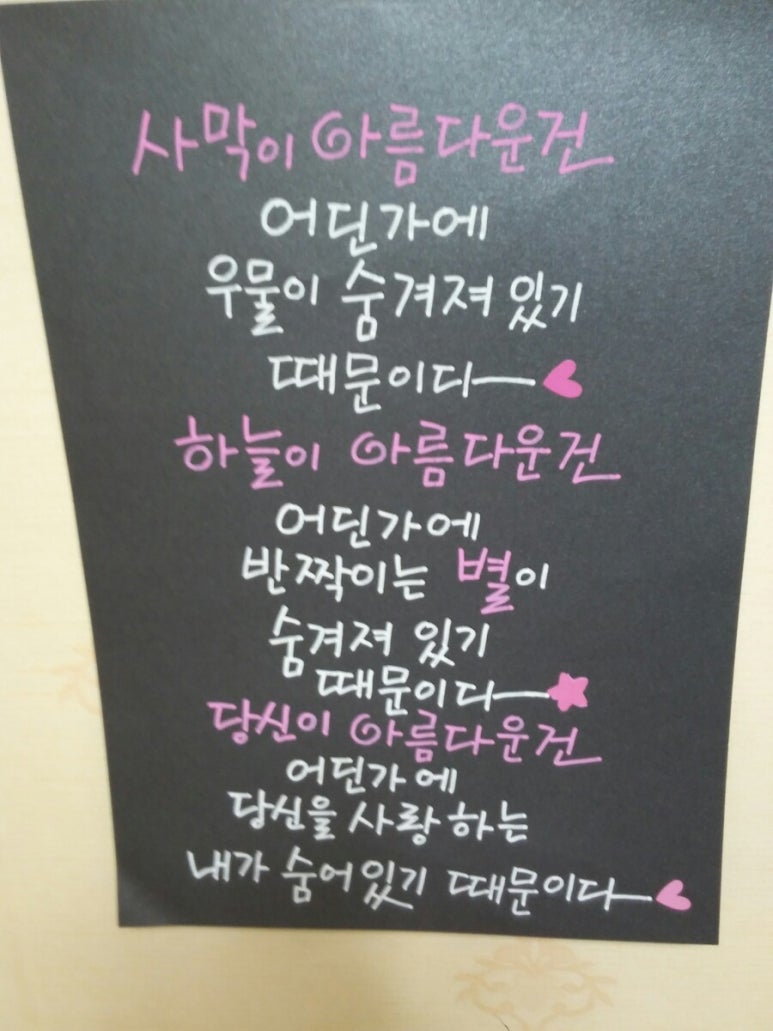 사막이 아름다운건
어딘가에
우물이 숨겨져 있기
때문이다
하늘이 아름다운건
어딘가에
반짝이는 별이
숨겨져 있기
때문이다
당신이 아름다운건
어딘가에
당신을 사랑하는
내가 숨어있기 때문이다